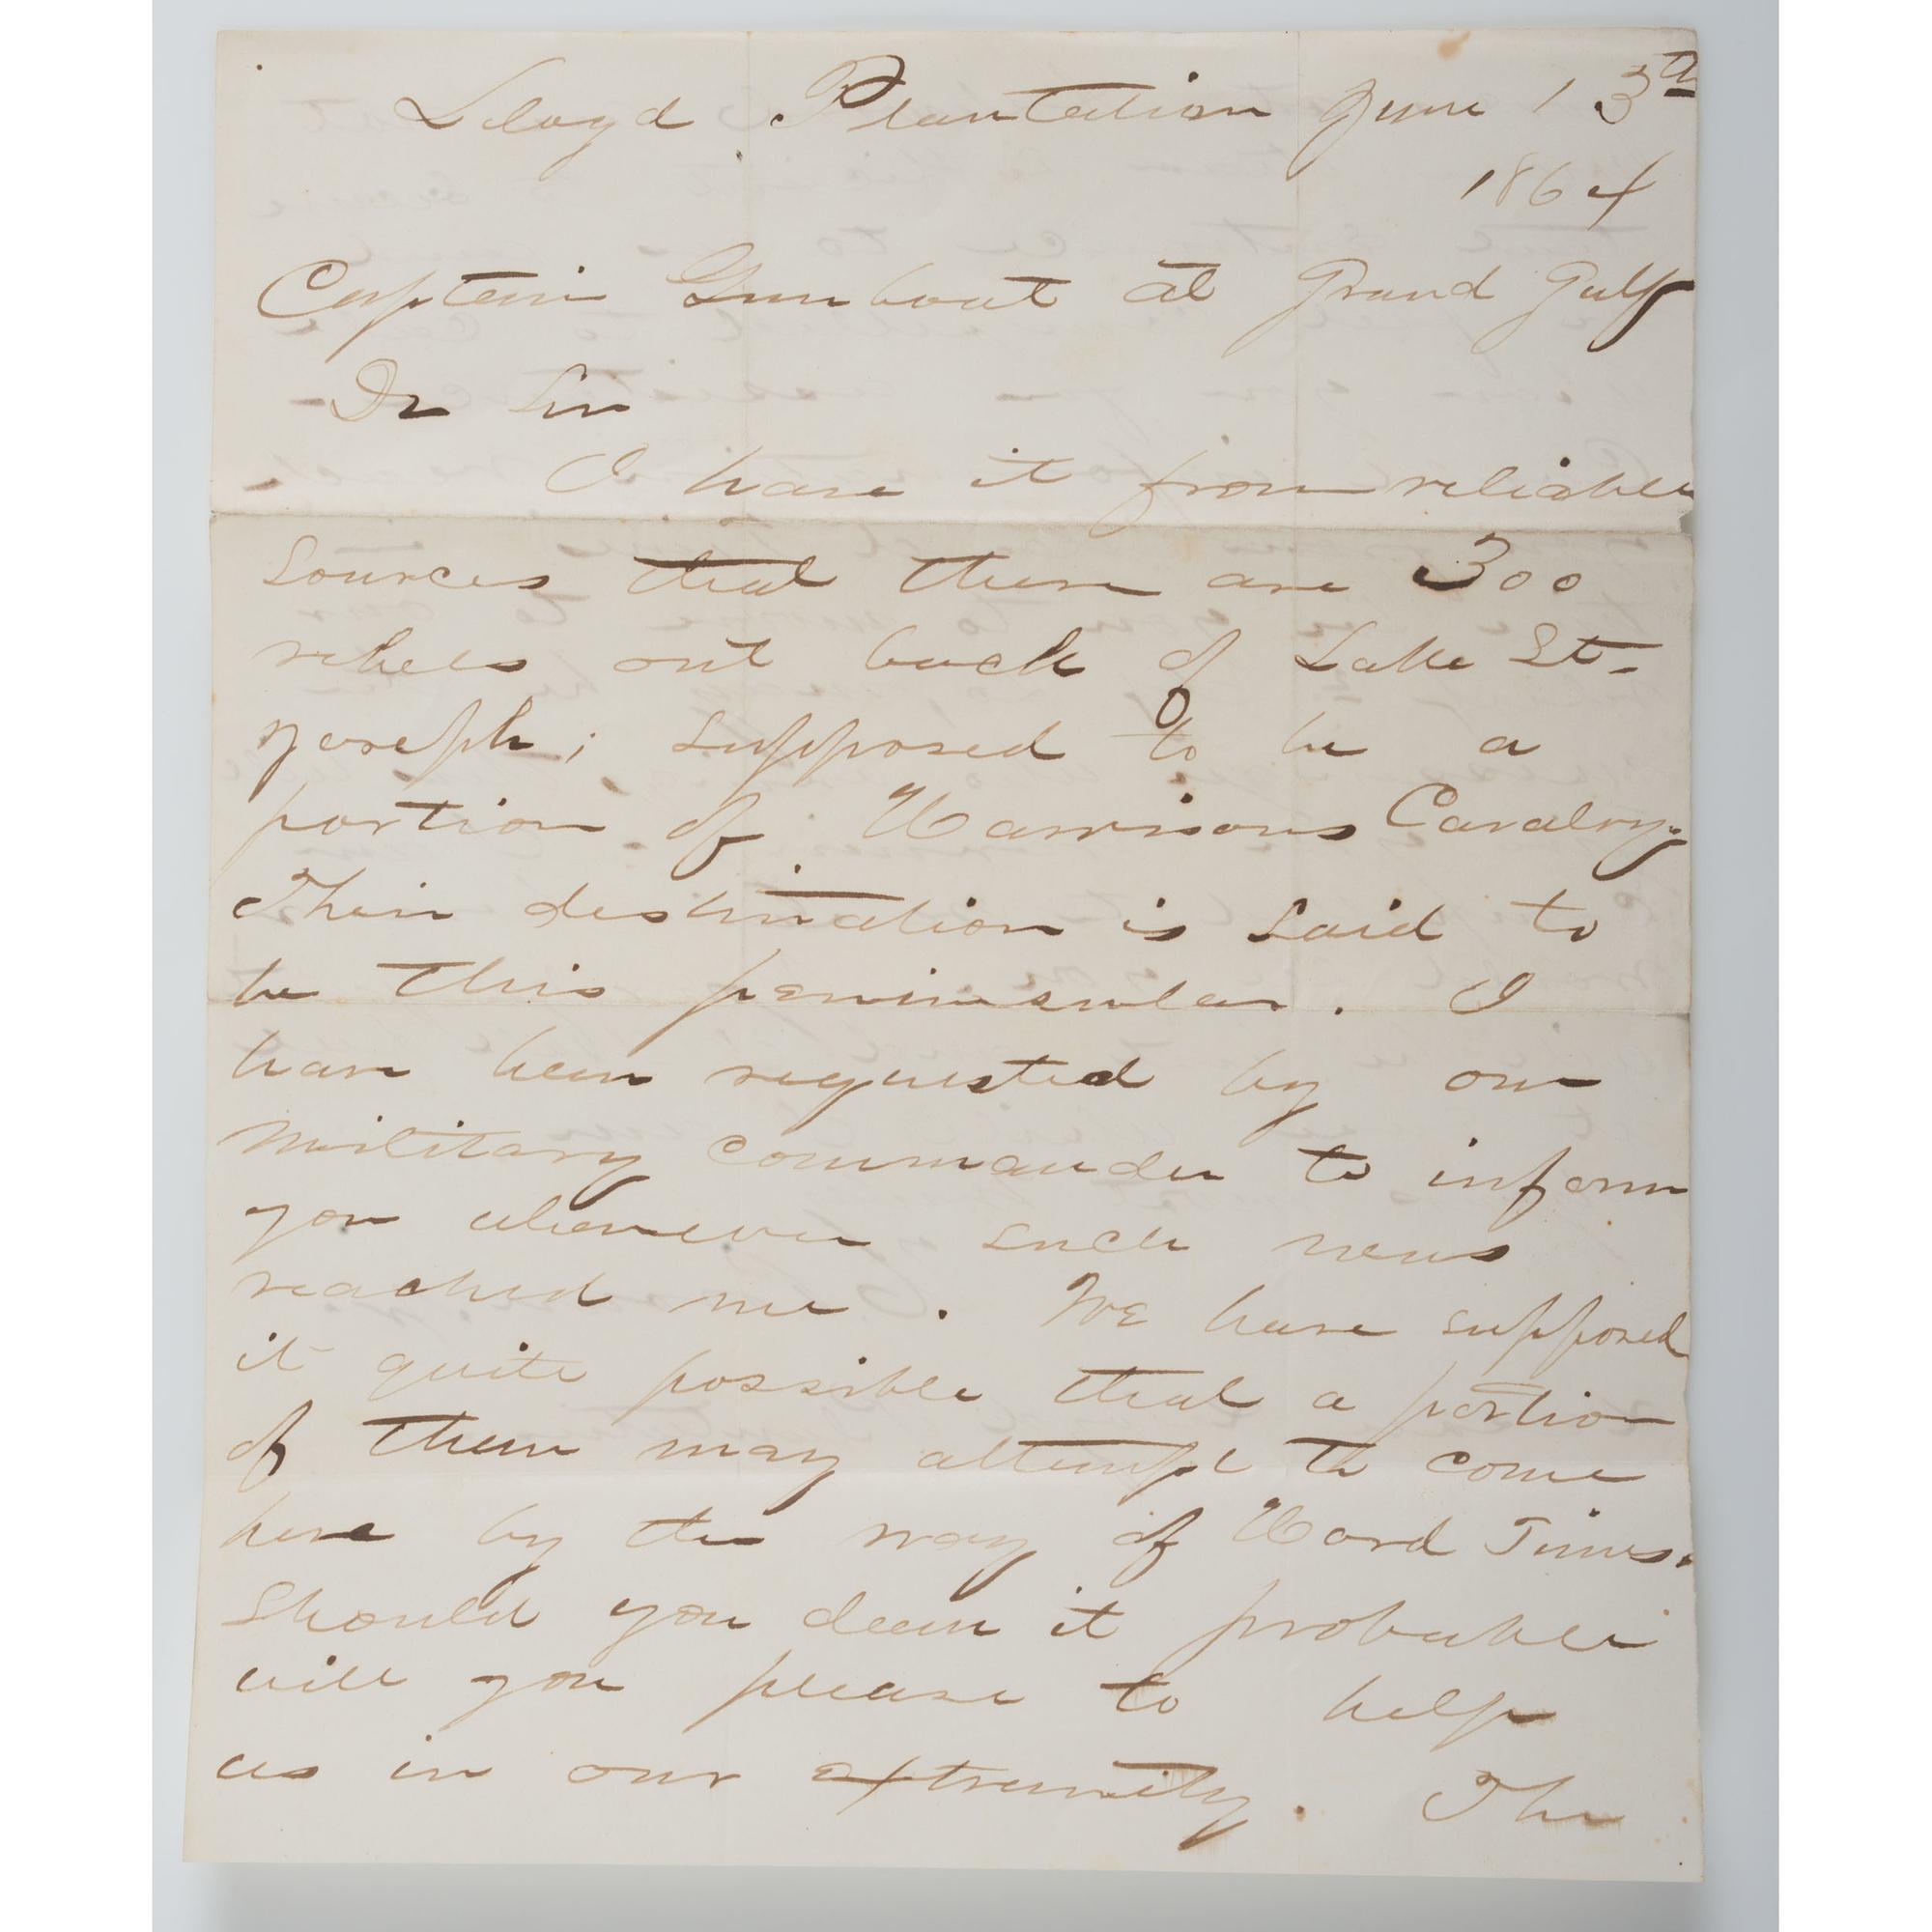 Lloyd Plantation June 13th
1864
Captain Gunboat at Grand Gulf
Dr Sir
I have it from reliable
sources that there are 300
rebels out back of Lake St-
Joseph; supposed to be a
portion of Harrisons Cavalry.
Their destination is said to
be this peninsular. I
have been requested by our
military commander to inform
you whenever such news
reached me. We have supposed
it quite possible that a portion
of them may attempt to come
here by the way of Hard Times.
Should you deem it probable
will you please to help
us in our extremity. The